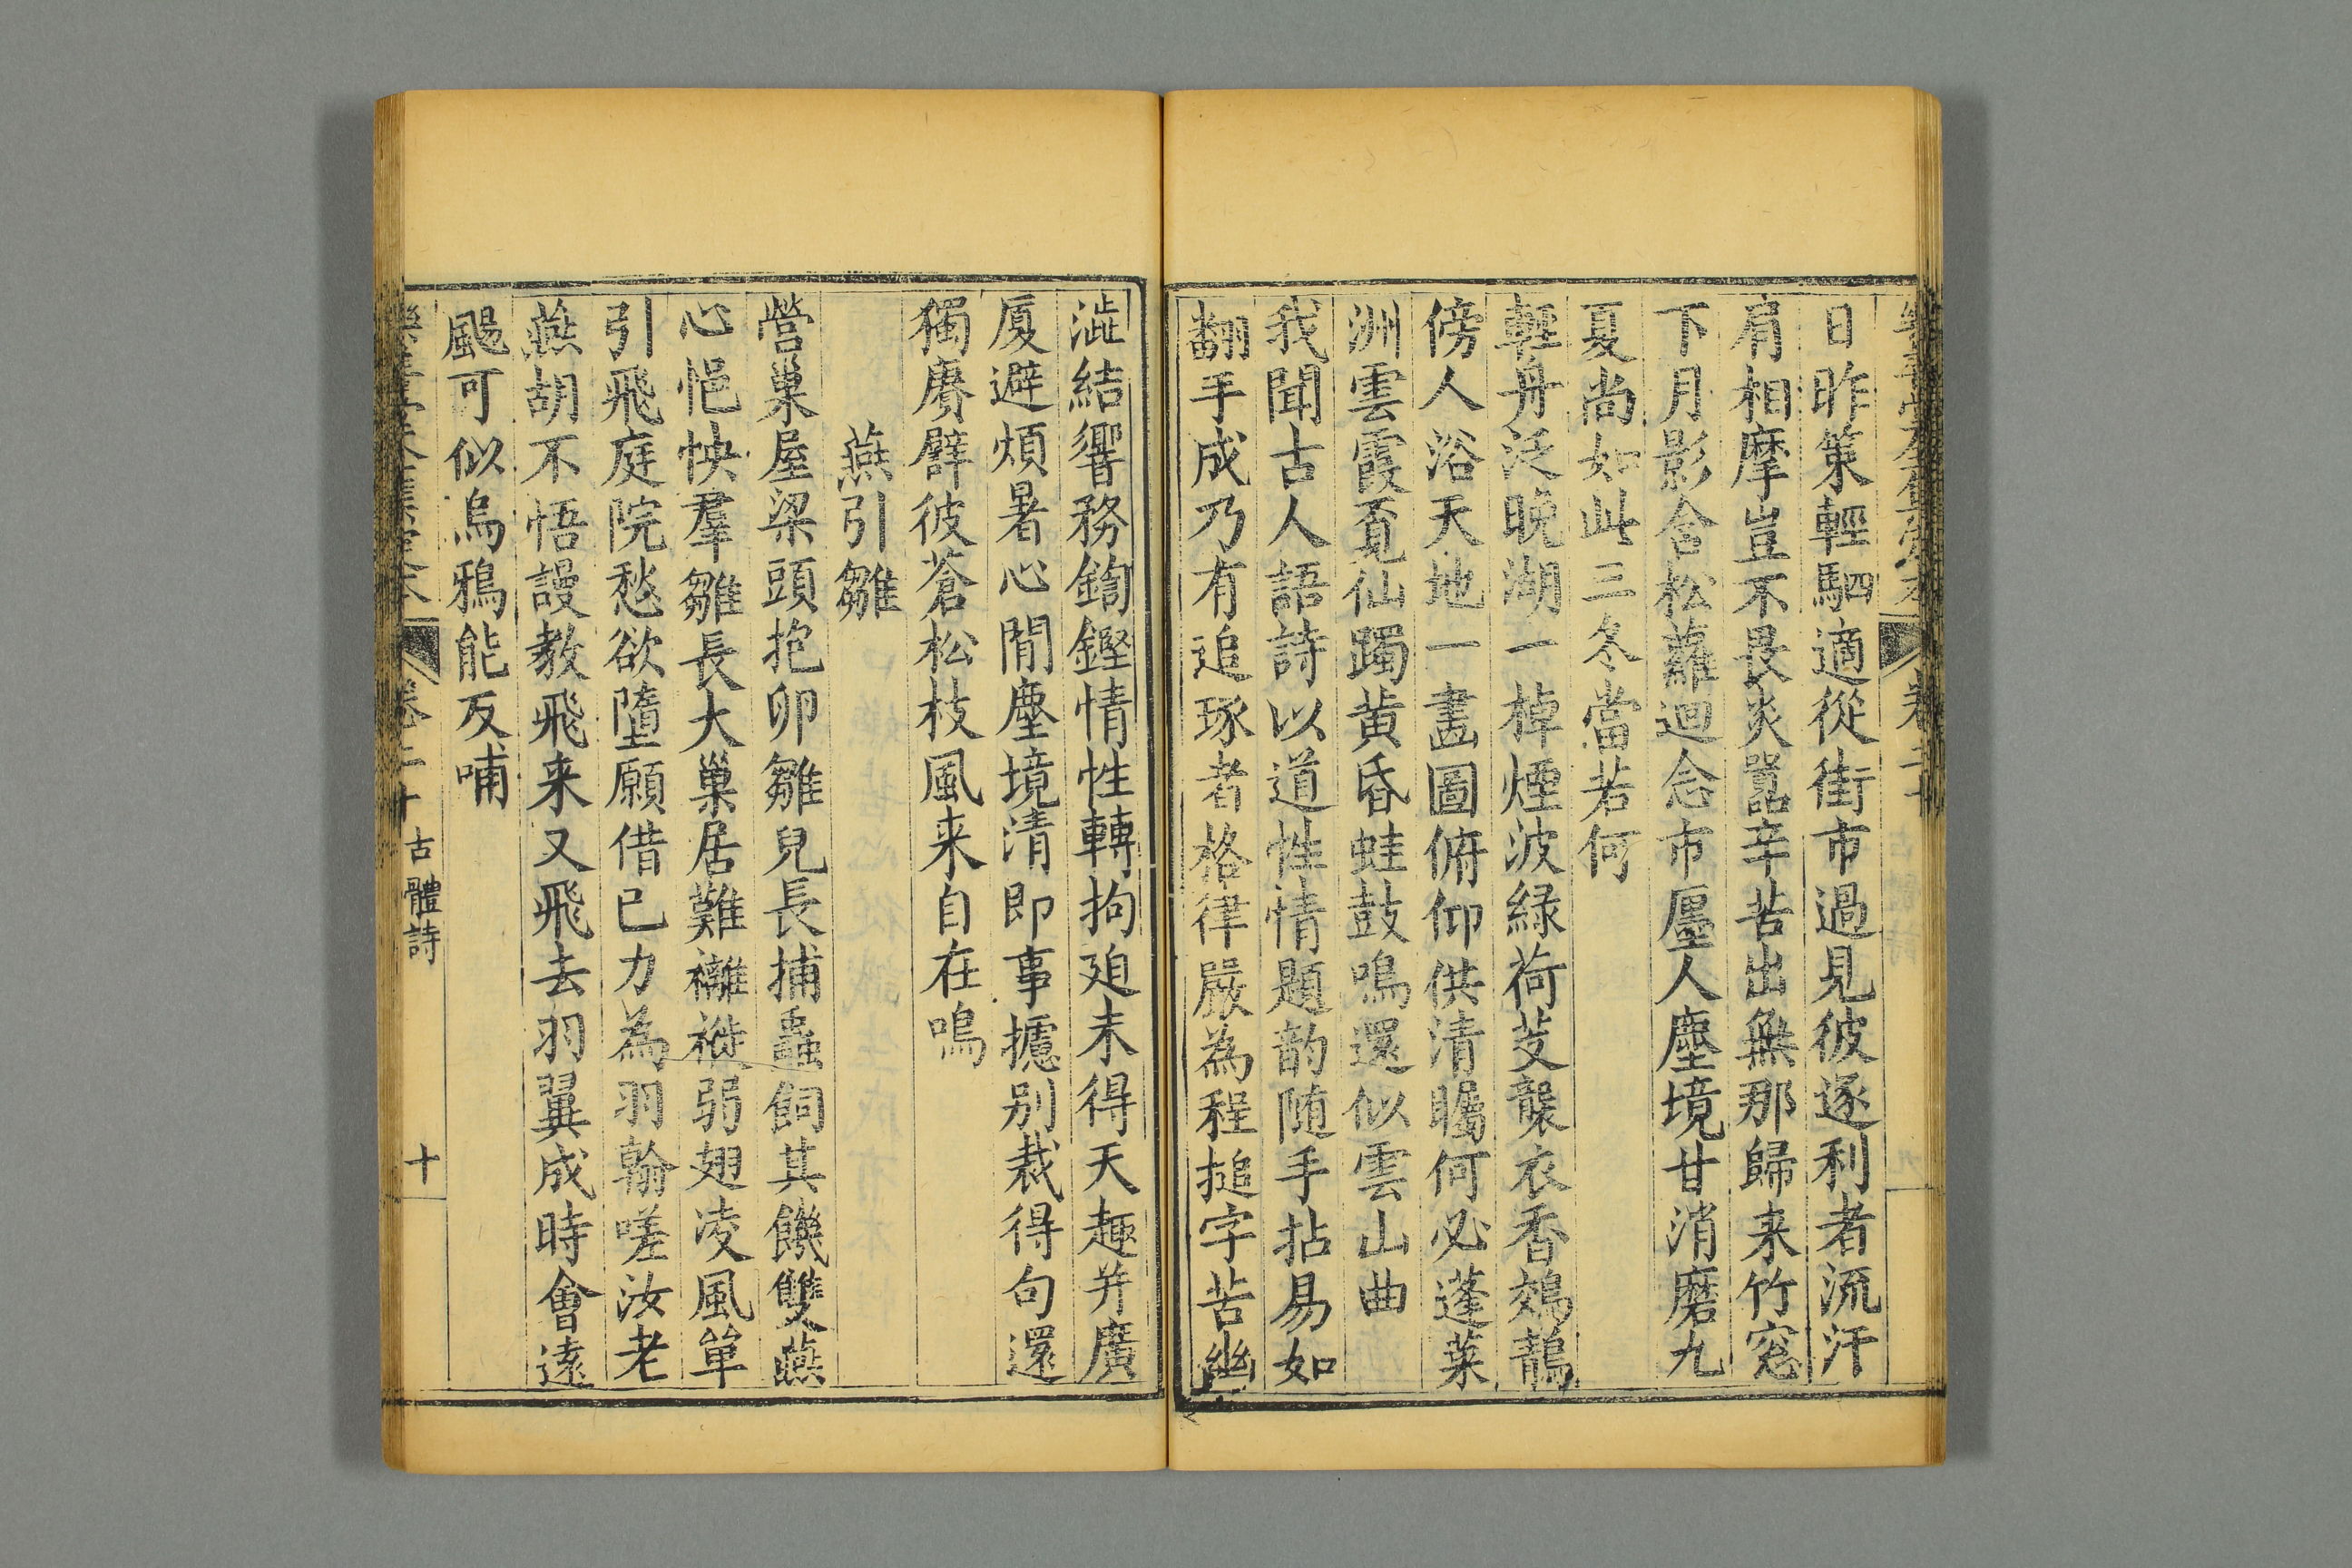 日昨策輕駟適從街市過見彼逐利者流汗
肩相摩豈不畏炎囂辛苦出無那歸来竹窓
下月影含松蘿迴念市廛人塵境甘消磨九
夏尚如此三冬當若何
輕舟泛晚湖一棹煙波緑荷芰襲衣香鵁鶄
傍人浴天地一畫圖俯仰供清矚何必蓬萊
洲雲霞覔仙躅黄昏蛙鼓鳴還似雲山曲
我聞古人語詩以道性情題韵随手拈易如
翻手成乃有追琢者格律嚴為程搥字苦幽
澁結響務鍧鏗情性轉拘廹未得天趣并廣
厦避煩暑心閒塵境清即事攄别裁得句還
獨賡臂彼蒼松枝風来自在鳴
燕引雛
營巢屋梁頭抱卵雛兒長捕蟲飼其饑雙燕
心悒怏羣雛長大巢居難襳褷弱翅凌風單
引飛庭院愁欲墮願借已力為羽翰嗟汝老
燕胡不悟謾教飛来又飛去羽翼成時會遠
颺可似烏鴉能反哺
樂善堂全集定本 卷二十 古體詩 十